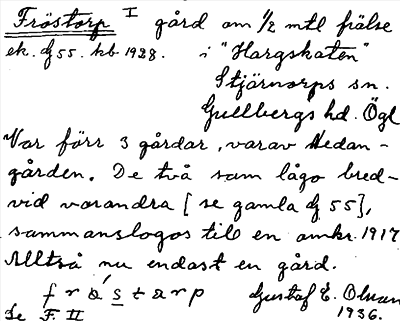 Fröstorp I gård om 1/2 mtl frälse
ek. df 55. kb. 1928. i "Hargskaten"
Stjärnorps sn.
Gullbergs hd. Ögl
Var förr 3 gårdar, varav Nedan-
gården. De två som lågo bred-
vid varandra [se gamla df 55],
sammanslogos till en omkr. 1917
Alltså nu endast en gård.
frö́starp Gustaf E. Olsson
Se F. II 1936.